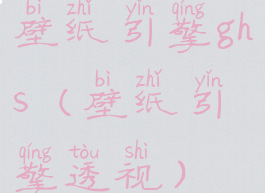 bì zhǐ yǐn qíng
壁纸引擎gh
bì zhǐ yǐn
s（壁纸引
qíng tòu shì
擎透视）